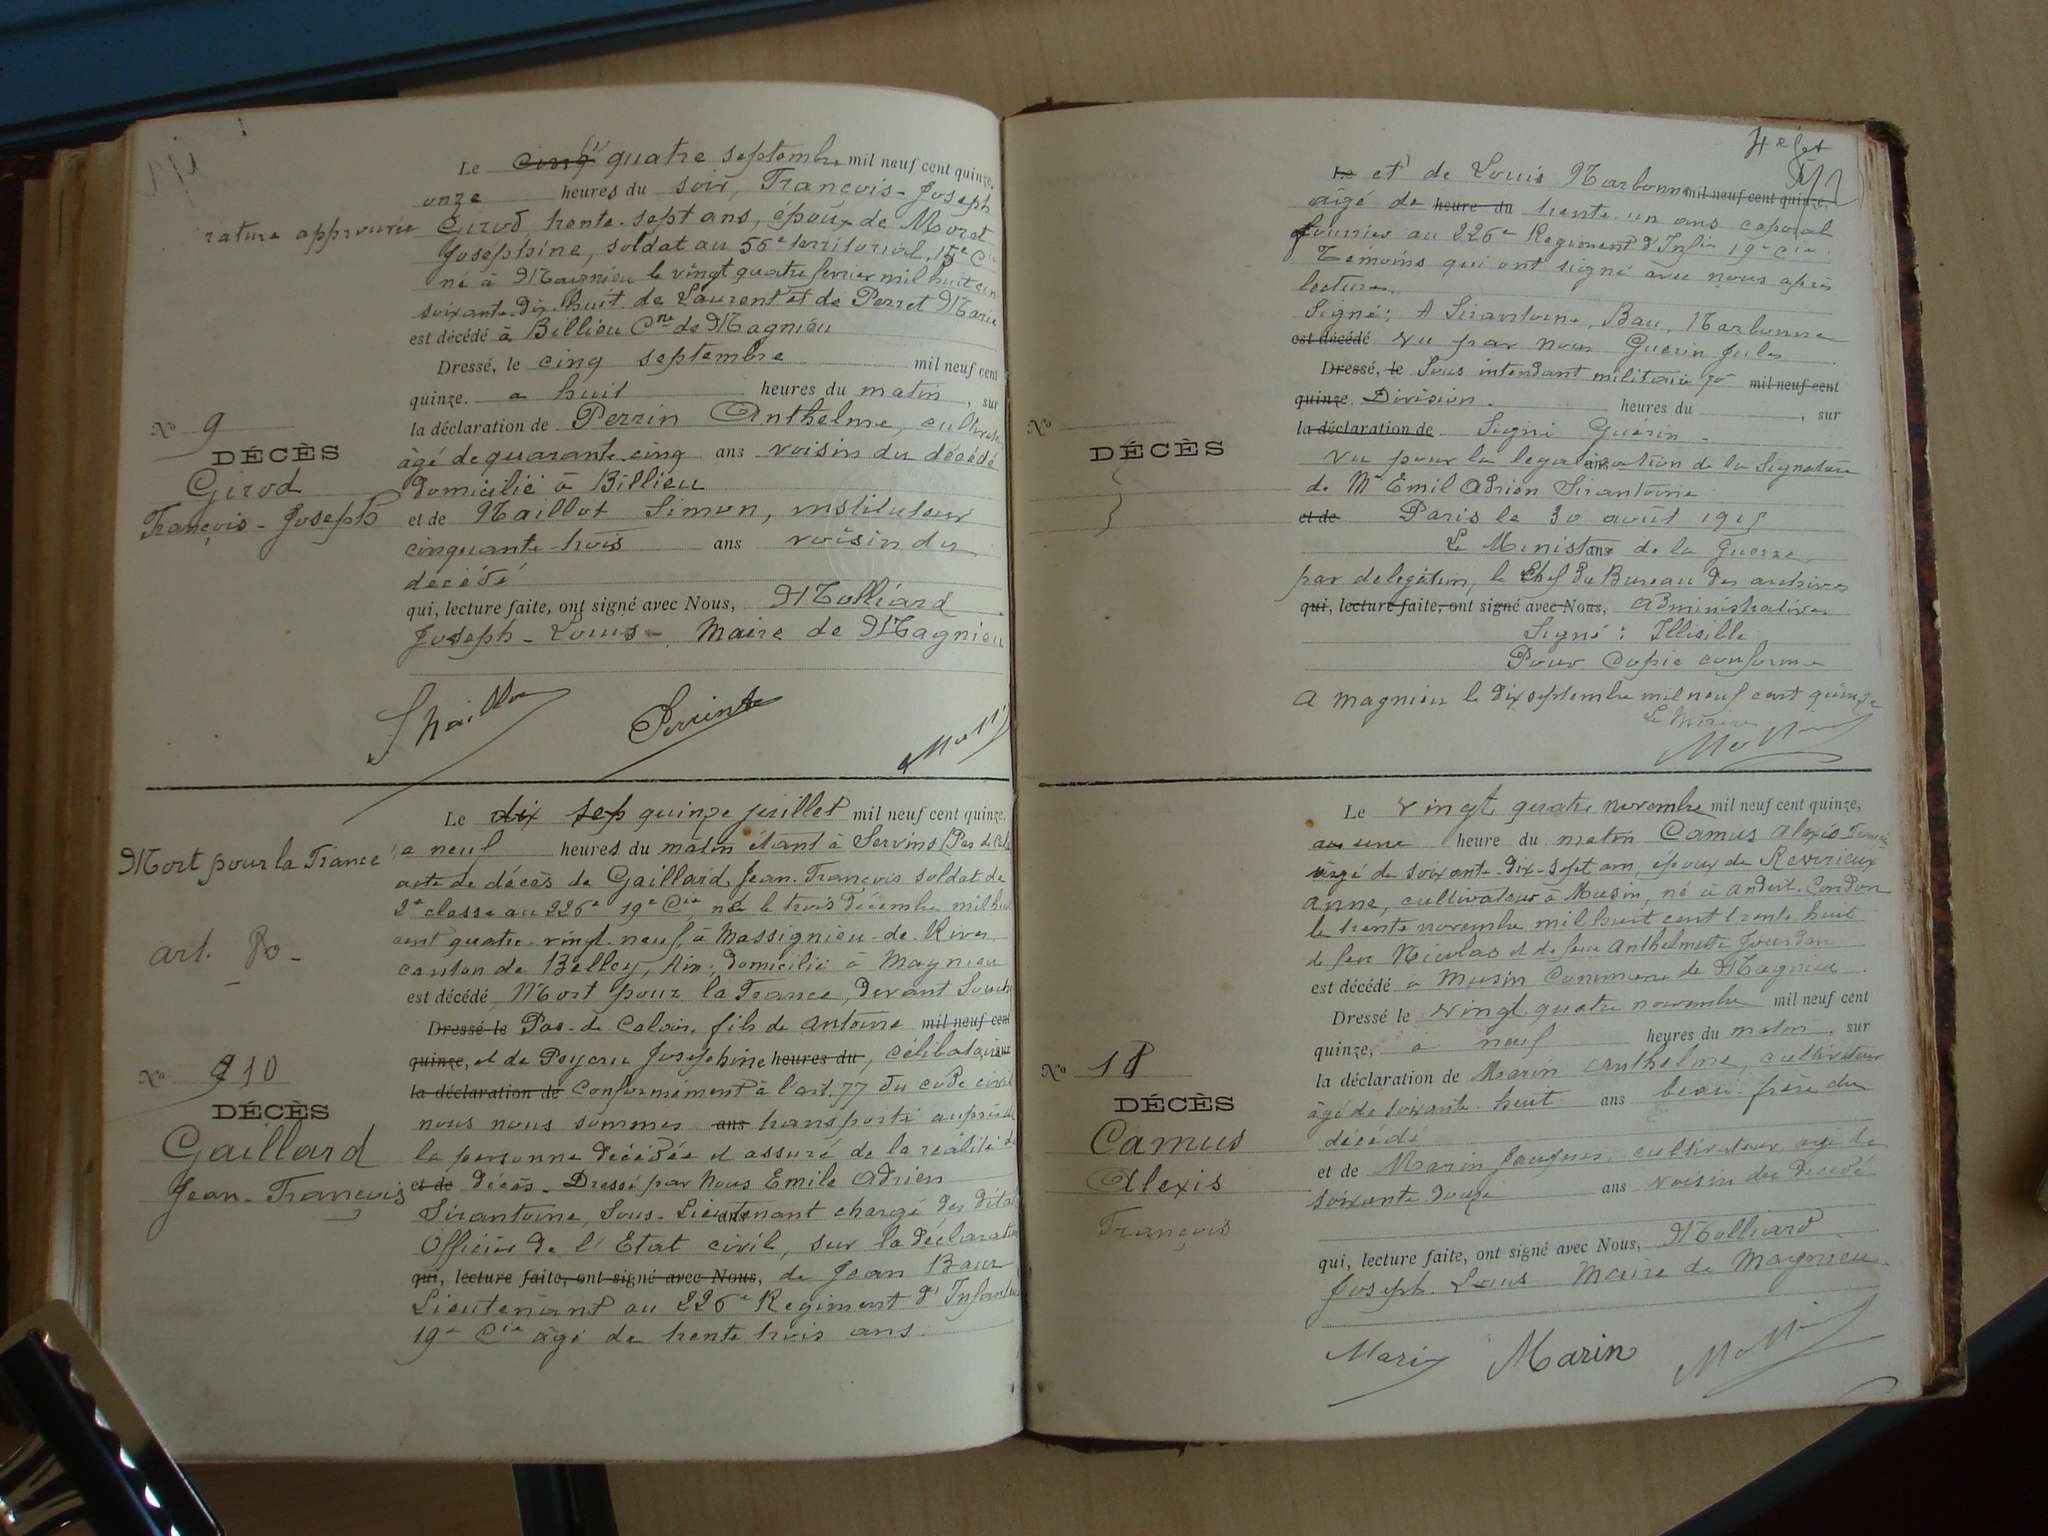 Le cinq quatre septembre mil neuf cent quinze,
onze heures du soir, François-Joseph
rature approuvée
Girod, trente-sept ans, époux de Moret
Joséphine, soldat au 56e territorial, 15e Cie
né à Magnieu le vingt quatre février mil huit cen
soixante-dix-huit de Laurent et de Perret Marie
est décédé à Billieu Cne de Magnieu
Dressé, le cinq septembre mil neuf cent
quinze. a huit heures du matin, sur
No 9
DÉCÈS
Girod
François-Joseph
la déclaration de Perrin Anthelme, cultivateu
âgé de quarante-cinq ans voisin du décédé
domicilié à Billieu
et de Maillot Simon, instituteur
cinquante-trois ans voisin du
décédé
qui, lecture faite, ont signé avec Nous, Molliard
Joseph-Louis-Maire de Magnieu
Perrin
Le dix sep quinze juillet mil neuf cent quinze,
a neuf heures du matin étant à Servins (Pas de Cala
Mort pour la France
art. 80-
No 9 10
DÉCÈS
Gaillard
Jean-François
acte de décès de Gaillard Jean-François soldat de
2e classe au 226e 19e Cie né le trois décembre mil huit
cent quatre-vingt-neuf, à Massignieu-de-Rives
canton de Belley, Ain, domicilié à Magnieu
est décédé, Mort pour la France, devant Souchez
Dressé le Pas-de Calais, fils de Antoine mil neuf cent
quinze, et de Peysson Joséphine heures du, célibataire sur
la déclaration de Conformément à l'art. 77 du code civil
nous nous sommes ans transporté auprès de
la personne décédée et assuré de la réalité du
et de décès. Dressé par Nous Emile Adrien
Sirantoine, Sous-Lieutenant ans chargé des détails
Officier de l'Etat civil, sur la déclaration
qui, lecture faite, ont signé avec Nous, de Jean Baur
Lieutenant au 226e Regiment d'Infanterie
19e Cie âgé de trente trois ans.
Le et de Louis Narbonne mil neuf cent quinze.
âgé de heure du trente-un ans caporal
fourrier au 226e Regiment d'Infie 19e Cie.
Témoins qui ont signé avec nous après
lecture.
Signé: A Sirantoine, Bau, Narbonne
est décédé Vu par nous Guérin Jules
Dressé, le Sous intendant militaire 70e mil neuf cent
quinze. Division. heures du , sur
No
DÉCÈS
la déclaration de Signé Guérin-
Vu pour la legalisation ans de la Signature
de Mr Emil Adrien Sirantoine
et de Paris le 30 août 1915
Le Ministre ans de la Guerre
par delegation, le Chef du Bureau des archives
qui, lecture faite, ont signé avec Nous, administratives
Signé: Illisible
Pour Copie conforme
A Magnieu le dix septembre mil neuf cent quinze
Le Maire
Le vingt quatre novembre mil neuf cent quinze,
au une heure du matin Camus Alexis François
âgé de soixante-dix-sept ans, époux de Revirieux
Anne, cultivateur à Musin, né à Andert-Condon
le trente novembre mil huit cent trente-huit
de feu Nicolas et de feue Anthelmette Jourdan
est décédé à Musin Commune de Magnieu.
Dressé le vingt-quatre novembre mil neuf cent
quinze, a neuf heures du matin, sur
No 11
DÉCÈS
Camus
Alexis
François
la déclaration de Marin Anthelme, cultivateur
âgé de soixante-huit ans beau-frère du
décédé
et de Marin Jacques, cultivateur, agé de
soixante douze ans voisin du décédé
qui, lecture faite, ont signé avec Nous, Molliard
Joseph Louis Maire de Magnieu.
Marin Marin